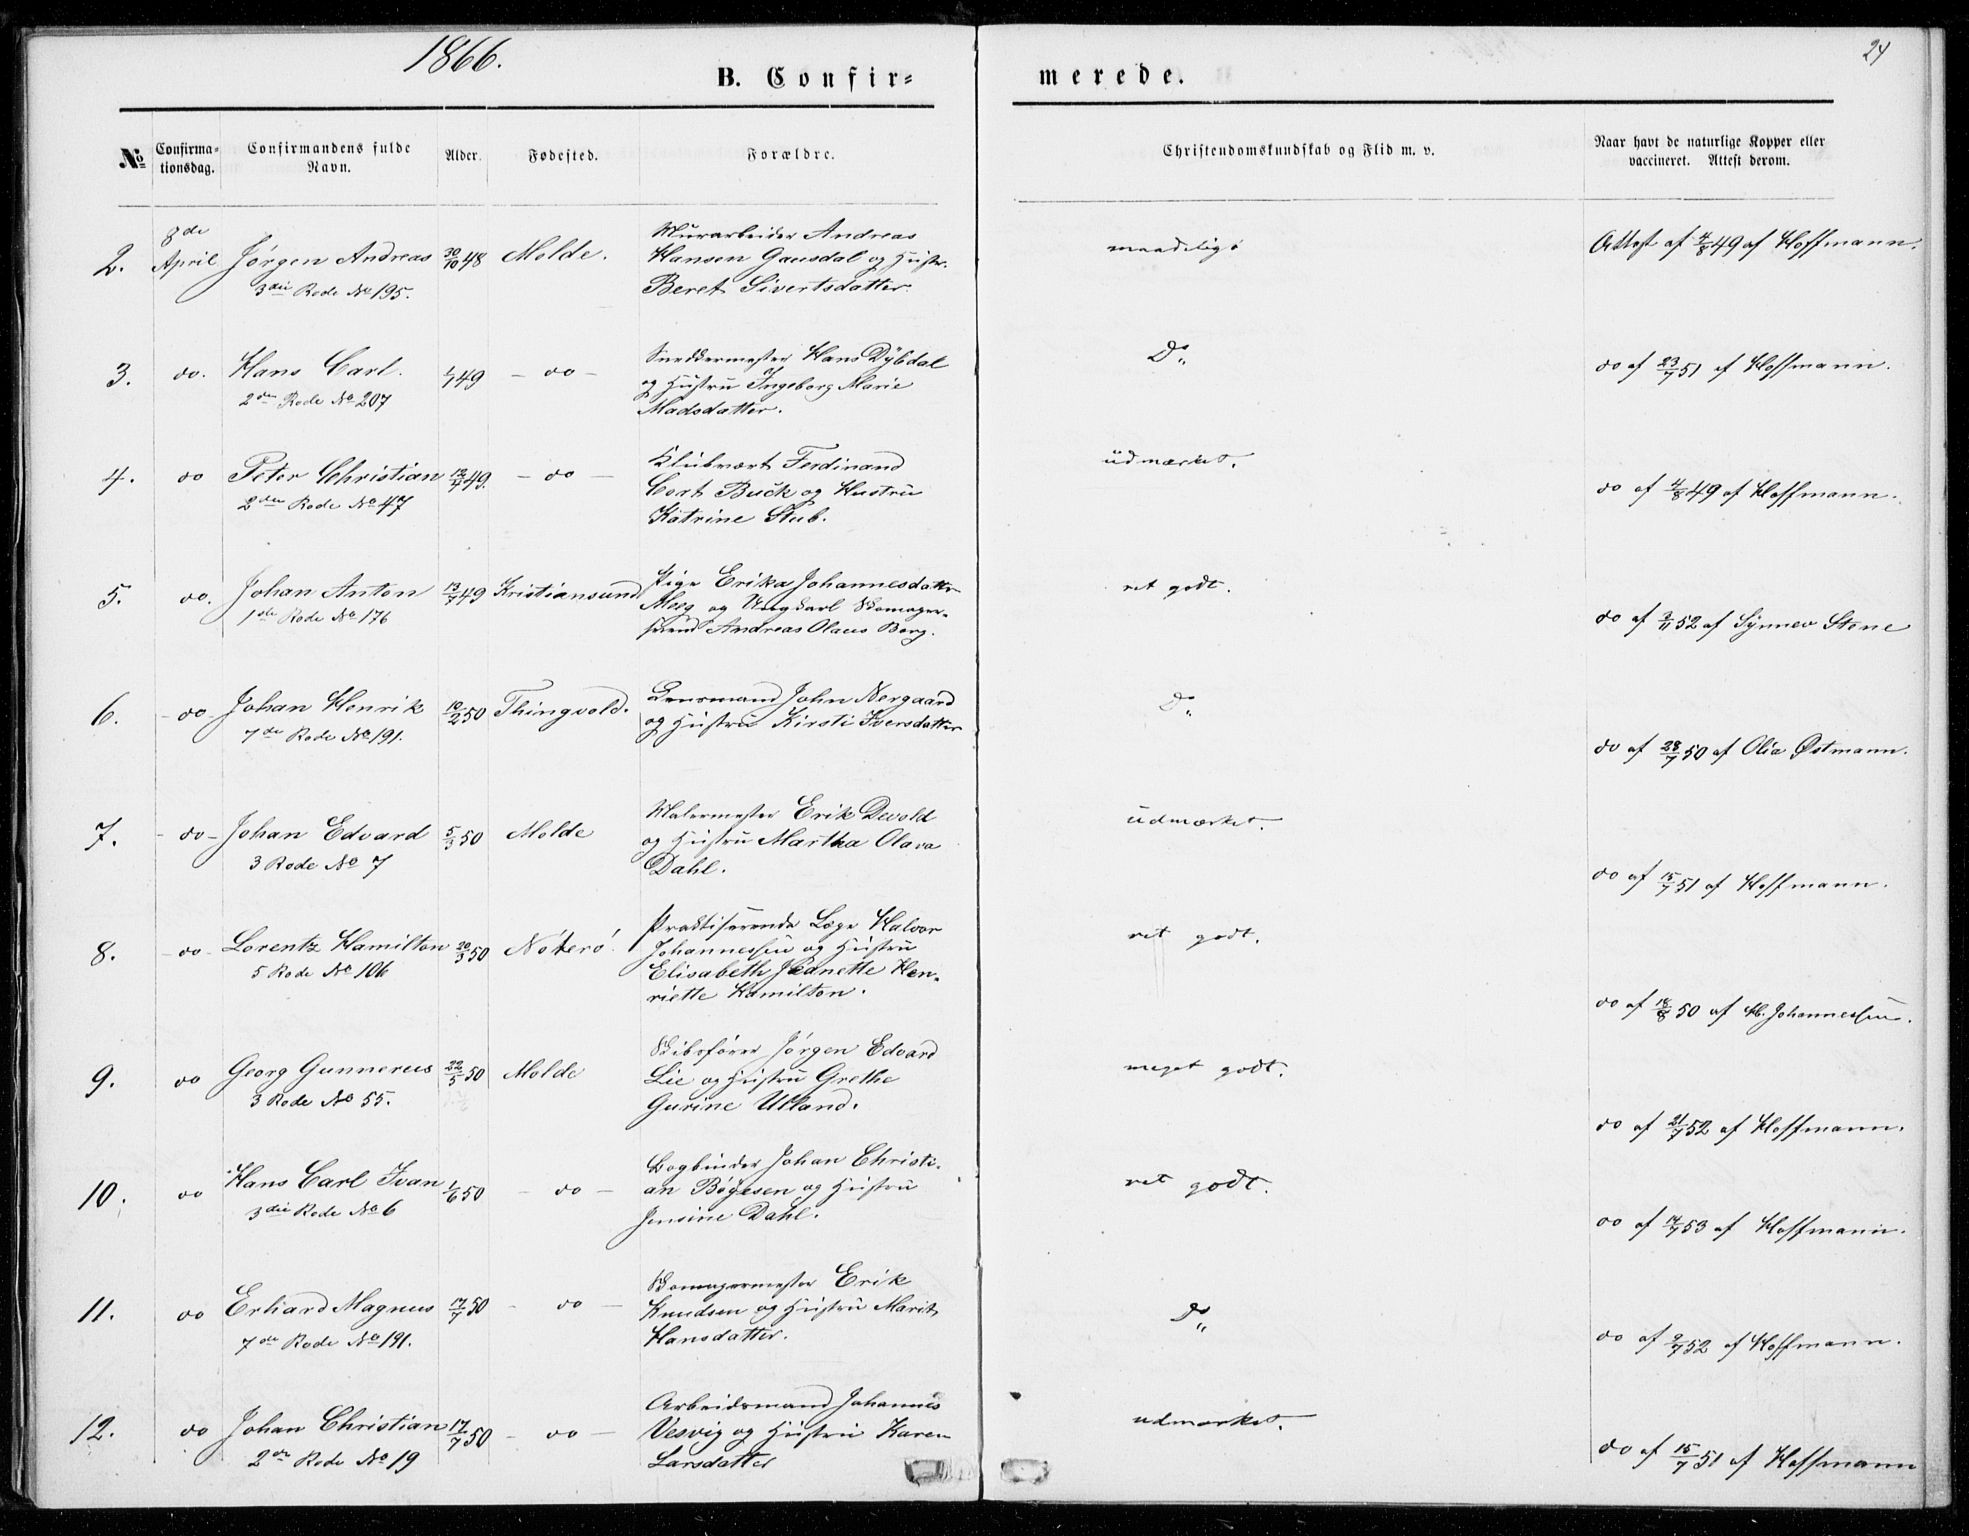 1866.
24
B. Confir-
merede.
No
Confirma-
tionsdag.
Confirmandens fulde
Navn.
Alder.
Fødested.
Forældre.
Christendomskundskab og Flid m. v.
Naar havt de naturlige Kopper eller
vaccineret. Attest derom.
2.
8de
April
Jørgen Andreas
3die Rode No 195.
30/10 48
Molde.
Murarbeider Andreas
Hansen Gausdal og Hustr.
Beret Sivertsdatter.
maadelig
Attest af 4/8 49 af Hoffmann.
3.
do.
Hans Carl.
2den Rode No 207
1/7 49
- do -
Snedkermester Hans Dÿbdal
og Hustru Ingeborg Marie
Madsdatter.
Do
do af 23/7 51 af Hoffmann.
4.
do
Peter Christian
2den Rode No 47
12/7 49.
- do -
Klubvært Ferdinand
Cort Buck og Hustru
Katrine Stub.
udmærket.
do af 4/8 49 af Hoffmann.
5.
do.
Johan Anton
1ste Rode No 176
13/7 49
Kristiansund
Pige Erika Johannesdatter
Meeg og Ungkarl Skomager-
svend Andreas Olaus Berg.
ret godt.
do af 2/11 52 af Synnev Stene
6.
- do -
Johan Henrik
7de Rode No 191.
10/2 50
Thingvold.
Lensmand John Nergaard
og Hustru Kirsti Iversdatter
Do
do af 28/7 50 af Olia Østmann.
7.
- do -
Johan Edvard
3 Rode No 7
5/3 50
Molde
Malermester Erik Devold
og Hustru Martha Olava
Dahl.
udmærket.
do af 15/7 51 af Hoffmann.
8.
- do -
Lorentz Hamilton
5 Rode No 106
20/3 50
Nøterø.
Praktiserende Læge Halvor
Johannessen og Hustru
Elisabeth Jeanette Hen-
riette Hamilton.
ret godt.
do af 18/8 50 af H. Johannessen.
9.
do
Georg Gunnerus
3 Rode No 55.
22/5 50
Molde
Skibsfører Jørgen Edvard
Lie og Hustru Grethe
Gurine Ulland.
meget godt.
do af 21/7 52 af Hoffmann.
10.
do
Hans Carl Ivan
3die Rode No 6
1/6 50
- do -
Bogbinder Johan Christi-
an Bøgesen og Hustru
Jensine Dahl.
ret godt.
do af 14/7 53 af Hoffmann.
11.
do
Erhard Magnus
7de Rode No 191.
17/7 50
- do -
Skomagermester Erik
Knudsen og Hustru Marit
Hansdatter.
Do
do af 9/7 52 af Hoffmann.
12.
do
Johan Christian
2den Rode No 19
17/7 50
- do -
Arbeidsmand Johannes
Vesvig og Hustru Karen
Larsdatter
udmærket.
do af 15/7 51 af Hoffmann